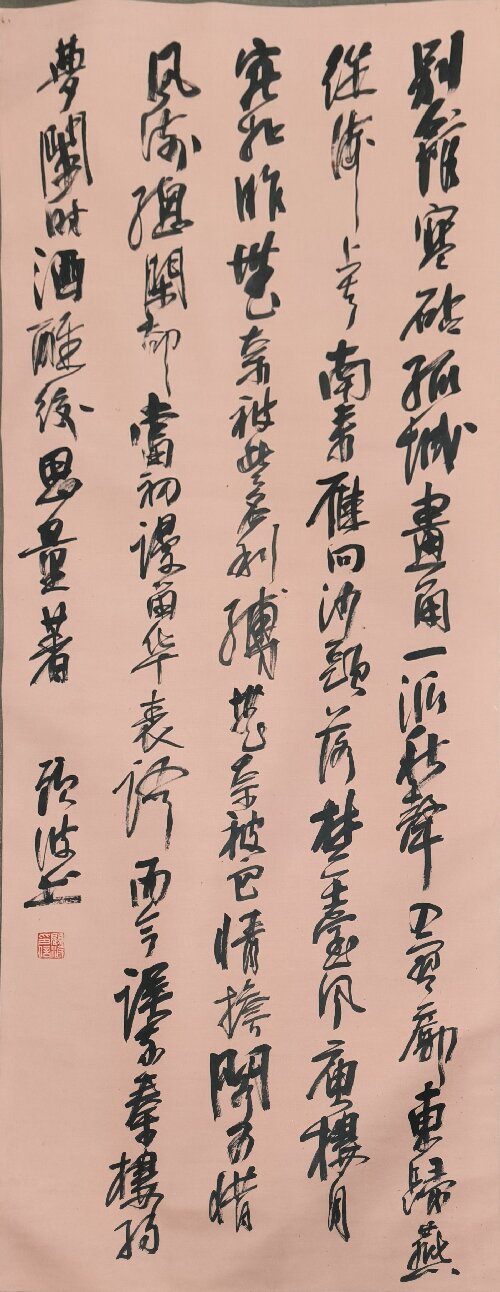 別館寒砧孤城畫角一派秋聲入寥廓東歸燕
從海上去南來雁向沙頭落楚臺風庾樓月
宛如昨無奈被些名利縛無奈被它情擔閣可惜
風流總閒却當初謾留华表語而今誤我秦樓約
夢闌时酒醒後思量著 顾波书